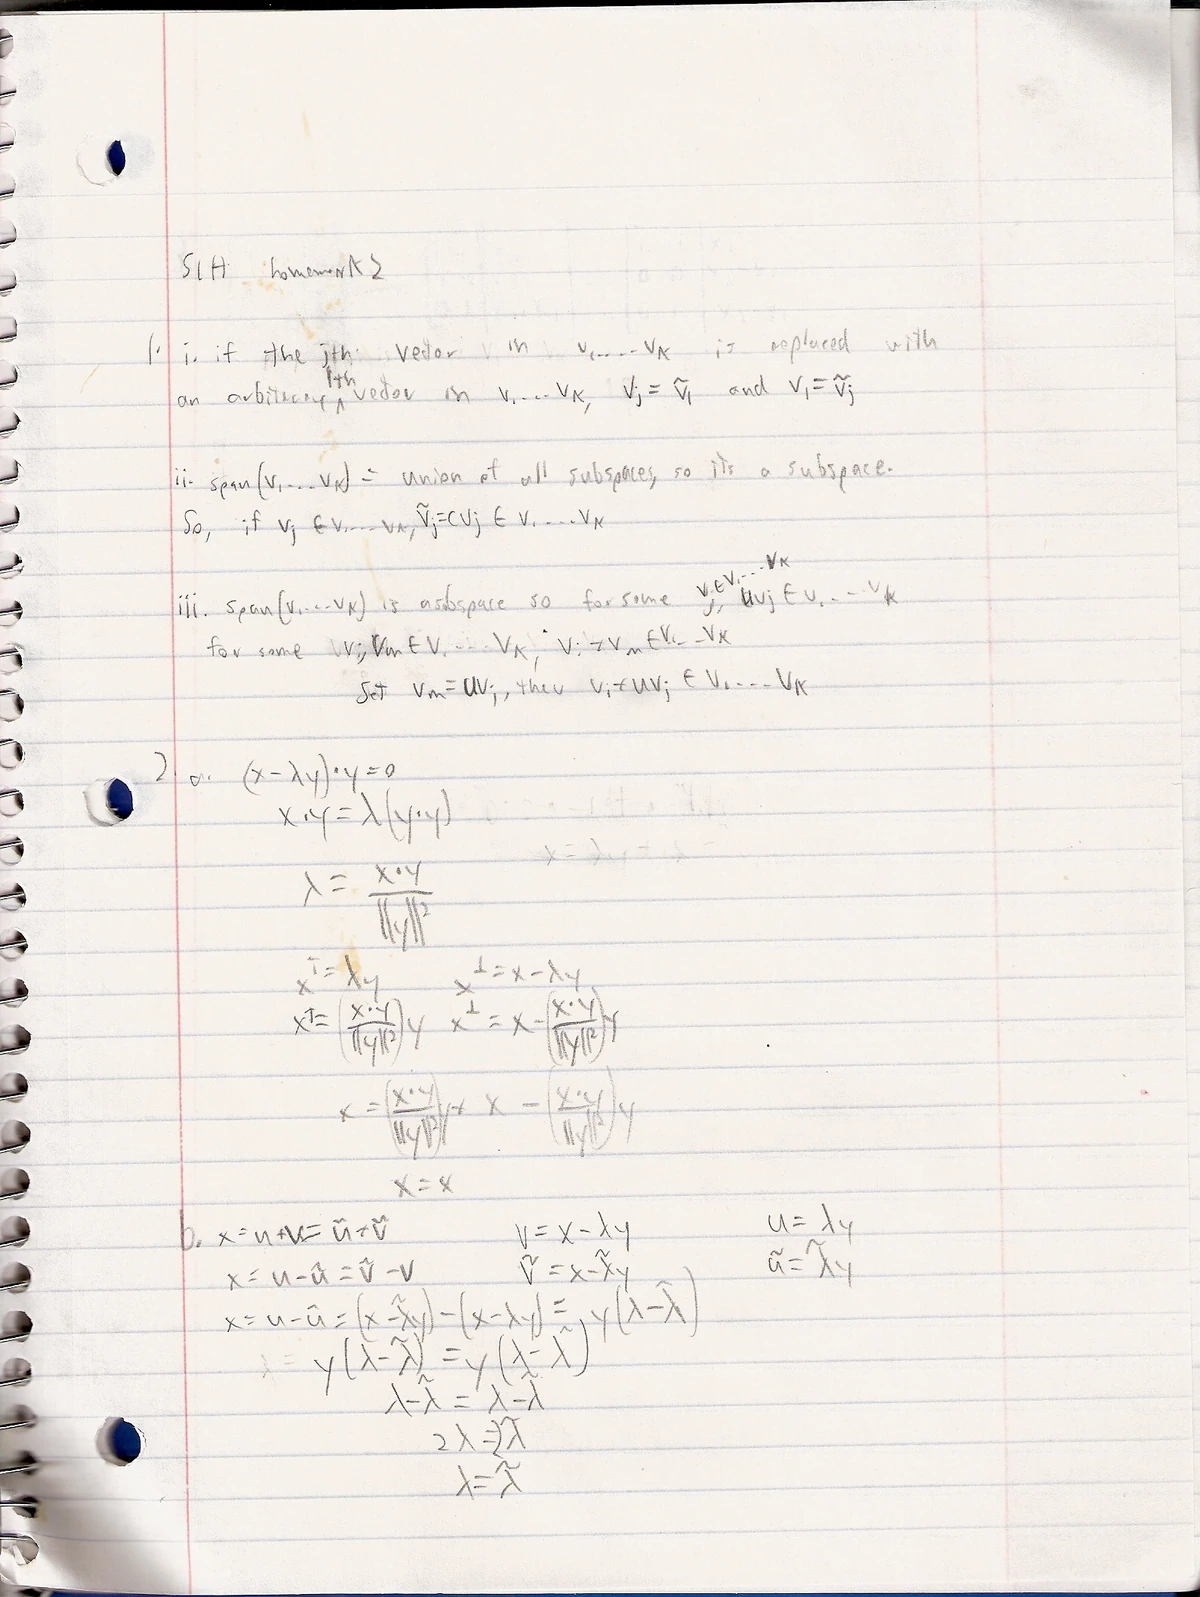 SLH homework 2
1. i. if the jth vector in v₁....vₖ is replaced with
an arbiterary lth vector in v₁...vₖ, vⱼ = ṽ₁ and v₁ = ṽⱼ
ii. span(v₁...vₖ) = union of all subspaces, so its a subspace.
So, if vⱼ ∈ v₁....vₖ, ṽⱼ=cvⱼ ∈ v₁....vₖ
iii. span(v₁...vₖ) is a subspace so for some vⱼ ∈ v₁...vₖ, uvⱼ ∈ v₁...vₖ
for some vᵢ, vₘ ∈ v₁....vₖ, vᵢ + vₘ ∈ v₁...vₖ
Set vₘ = uvⱼ, then vᵢ + uvⱼ ∈ v₁....vₖ
2 a. (x-λy)·y=0
x·y = λ(y·y)
λ = x·y / ||y||²
x^T = λy x^⊥ = x-λy
x^T = (x·y / ||y||²)y x^⊥ = x - (x·y / ||y||²)y
x = (x·y / ||y||²)y + x - (x·y / ||y||²)y
x = x
b. x=u+v=ũ+ṽ v=x-λy u=λy
x=u-ũ=ṽ-v ṽ=x-λ̃y ũ=λ̃y
x=u-ũ=(x-λ̃y)-(x-λy)=y(λ-λ̃)
y(λ-λ̃)=y(λ-λ̃)
λ-λ̃=λ-λ̃
2λ=2λ̃
λ=λ̃